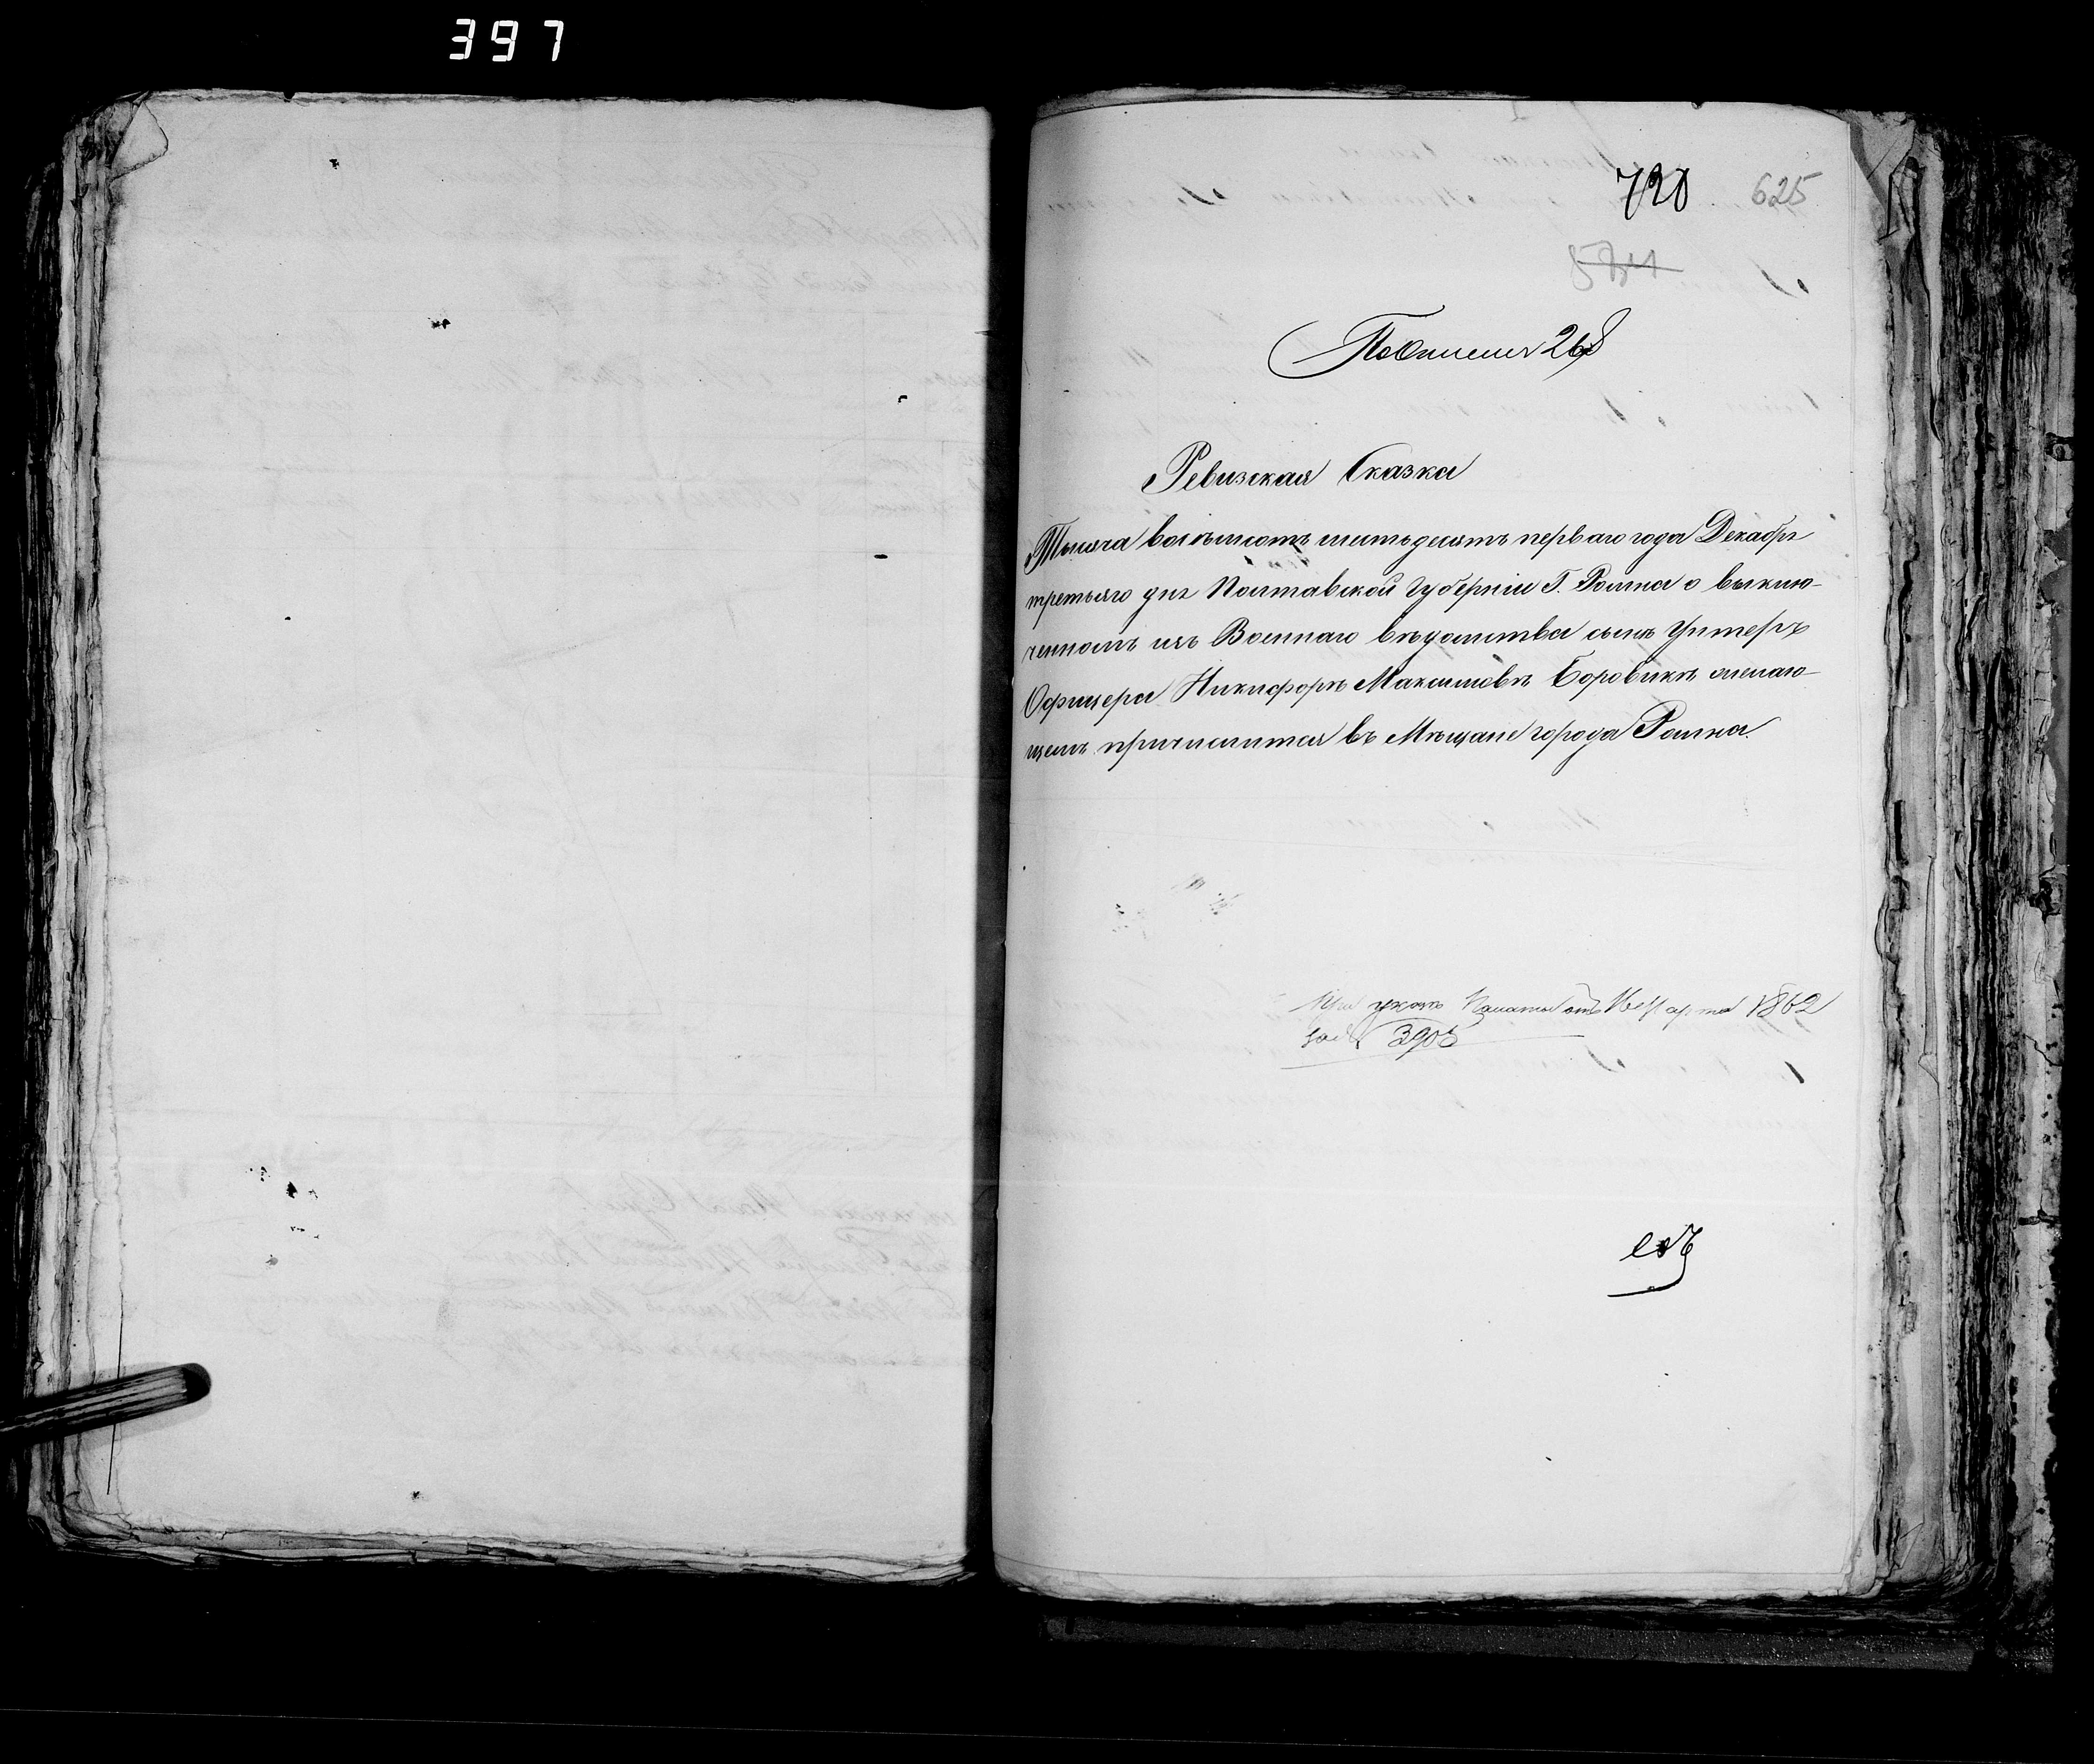 397
720 625
584
По описи 268
Ревизская Сказка
Тысяча восемьсотъ шестьдесятъ перваго года Декабря
третьяго дня Полтавской Губерніи Г. Ромна о выклю-
ченномъ изъ Военнаго вѣдомства сынѣ Унтеръ
Офицера Никифорѣ Максимовѣ Боровикѣ желаю-
щемъ причислится въ Мѣщане города Ромна.
При указѣ Палаты отъ Марта 1862
года 3905